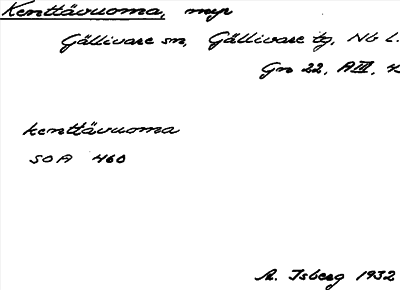 Kenttävuoma, myr
Gällivare sn, Gällivare tg, Nb L.
Gn 22, A III, 4
kenttävuoma
SOA 460
A. Isberg 1932